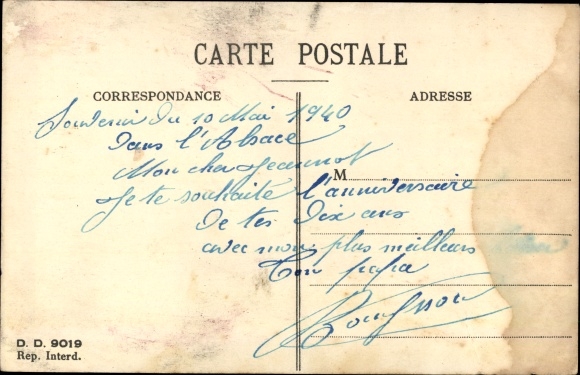 CARTE POSTALE
CORRESPONDANCE
ADRESSE
Souvenir du 10 Mai 1940
Dans l'Alsace
Mon cher Jeannot
M
Je te souhaite l'anniversaire
De tes Dix ans
avec mes plus meilleurs
Ton papa
D. D. 9019
Rep. Interd.